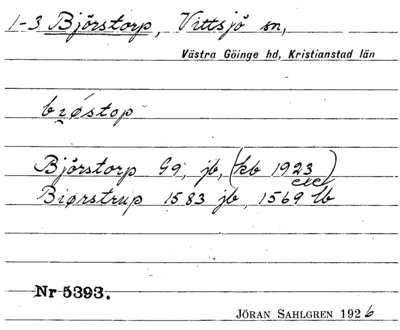 1-3 Björstorp, Vittsjö sn,
Västra Göinge hd, Kristianstad län
Björstorp G9, jb, (kb 1923)
Biørstrup 1583 jb, 1569 lb
Nr 5393.
JÖRAN SAHLGREN 1926